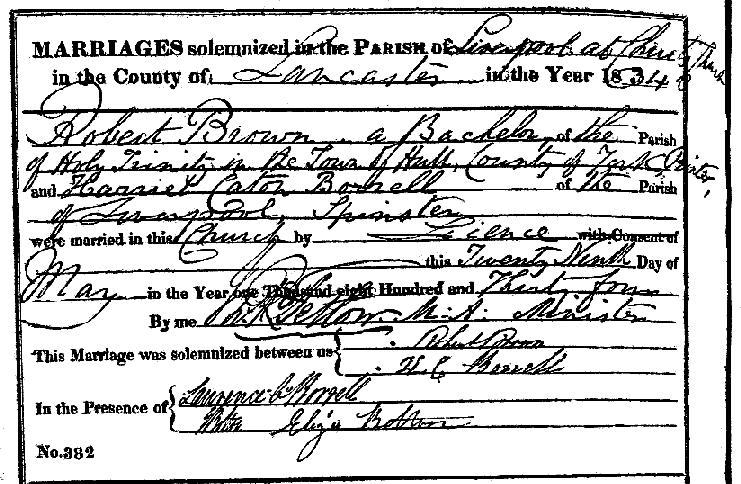 MARRIAGES solemnized in the PARISH of Liverpool at Christ Church
in the County of Lancaster in the Year 1834
Robert Brown a Bachelor of the Parish
of Holy Trinity in the Town of Hull, County of York,
and Harriet Caton Borrell of the Parish
of Liverpool, Spinster
were married in this Church by Licence with Consent of
this Twenty Ninth Day of
May in the Year One Thousand eight Hundred and Thirty four
By me M.A. Minister
This Marriage was solemnized between us { Robert Brown
H.C. Borrell
In the Presence of { Borrell
Eliza
No. 382